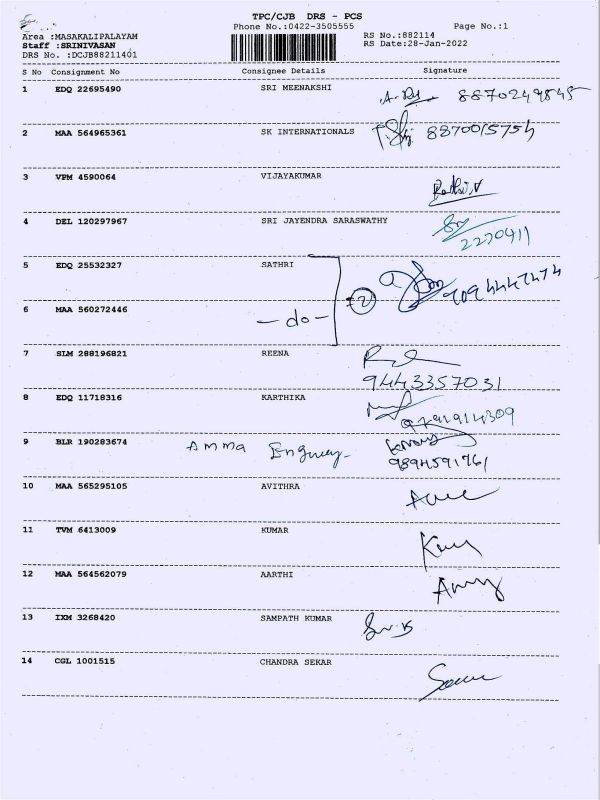 TPC/CJB DRS - PCS
Phone No.:0422-3505555 Page No.:1
Area :MASAKALIPALAYAM
Staff :SRINIVASAN
DRS No. :DCJB88211401
RS No.:882114
RS Date:28-Jan-2022
S No Consignment No Consignee Details Signature
1 EDQ 22695490 SRI MEENAKSHI 8870249845
2 MAA 564965361 SK INTERNATIONALS 8870015754
3 VPM 4590064 VIJAYAKUMAR
4 DEL 120297967 SRI JAYENDRA SARASWATHY
2270411
5 EDQ 25532327 SATHRI
6 MAA 560272446 - do -
7 SLM 288196821 REENA
9443357031
8 EDQ 11718316 KARTHIKA
9 BLR 190283674 Amma
9894591761
10 MAA 565295105 AVITHRA
11 TVM 6413009 KUMAR
12 MAA 564562079 AARTHI
13 IXM 3268420 SAMPATH KUMAR
14 CGL 1001515 CHANDRA SEKAR